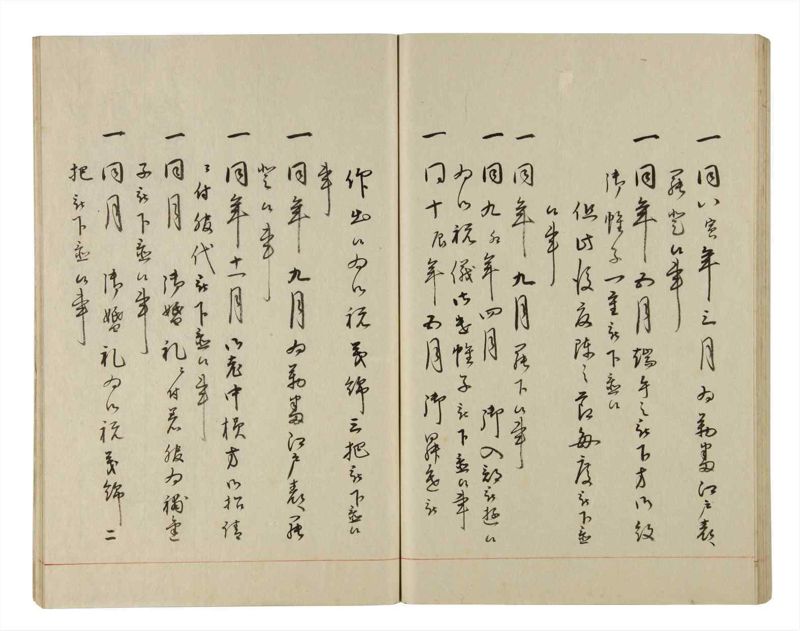 一同八寅年三月為勤番江戸表江
罷登候事
一同年五月端午之被下方御紋
御帷子一重被下置候
但此後度陳之節毎度被下置
候事
一同年九月罷下候事
一同九卯年四月 御入部被遊候
為御祝儀御帷子被下置候事
一同十辰年五月御昇進被
作出候為御祝美綿三把被下置候
事
一同年九月為勤番江戸表江罷
登候事
一同年十一月御老中様方御招請
ニ付服代被下置候事
一同月御婚礼ニ付若服為
子被下置候事
一同月御婚礼為御祝美綿二
把被下置候事